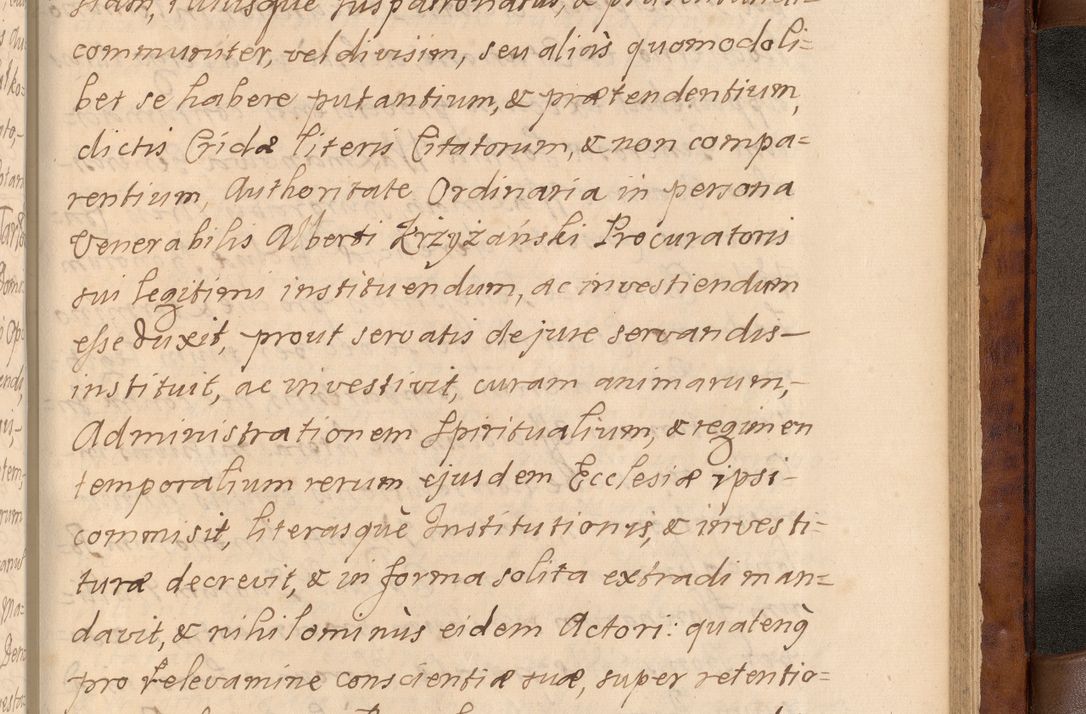 communiter, vel divisim, seu aliàs quomodoli=
bet se habere putantium, & prætendentium,
dictis Cridæ literis Citatorum, & non compa=
rentium, Authoritate Ordinaria in persona
Venerabilis Alberti Krzyżański Procuratoris
sui legitimi instituendum, ac investiendum
esse duxit, prout servatis de jure servandis-
instituit, ac investivit, curam animarum,-
Administrationem Spiritualium, & regimen
temporalium rerum ejusdem Ecclesiæ ipsi-
commisit, literasquè Institutionis, & investi=
turæ decrevit, & in forma solita extradi man=
davit, & nihilominùs eidem Actori: quatenq̀
pro relevamine conscientiæ suæ, super retentio=